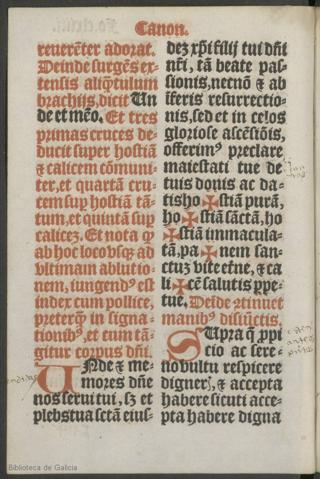 Canon.
reuerēter adorat.
Deinde surgēs ex-
tensis aliq̄tulum
brachijs, dicit Un
de et mēo. Et tres
primas cruces de-
ducit super hostiā
⁊ calicem cōmuni-
ter, et quartā cru-
cem sup hostiā tā-
tum, et quintā sup
calicez. Et nota ꝙ
ab hoc locovsqꝫ ad
vltimam ablutio-
nem, iungendꝰ est
index cum pollice,
preterq̄ in signa-
tionibꝰ, et cum tā-
gitur corpus dn̄i.
UNde ⁊ me-
mores dn̄e
nos serui tui, sꝫ et
plebstua sctā eius-
dez xp̄i filij tui dn̄i
nr̄i, tā beate pas-
sionis, necnō ⁊ ab
īferis resurrectio-
nis, sed et in celos
gloriose ascēsiōis,
offerimꝰ preclare
maiestati tue de
tuis donis ac da-
tis ho✠stiā purā,
ho✠stiā sāctā, ho
✠stiā immacula-
tā, pa✠nem san-
ctuz vite etne, ⁊ ca
li✠cē salutis ppe-
tue. Deīde ꝛtinuet
manibꝰ disiūctis.
SUpra q̄ ppi
cio ac sere-
no vultu respicere
digneꝛ, ⁊ accepta
habere sicuti acce-
pta habere digna
Biblioteca de Galicia